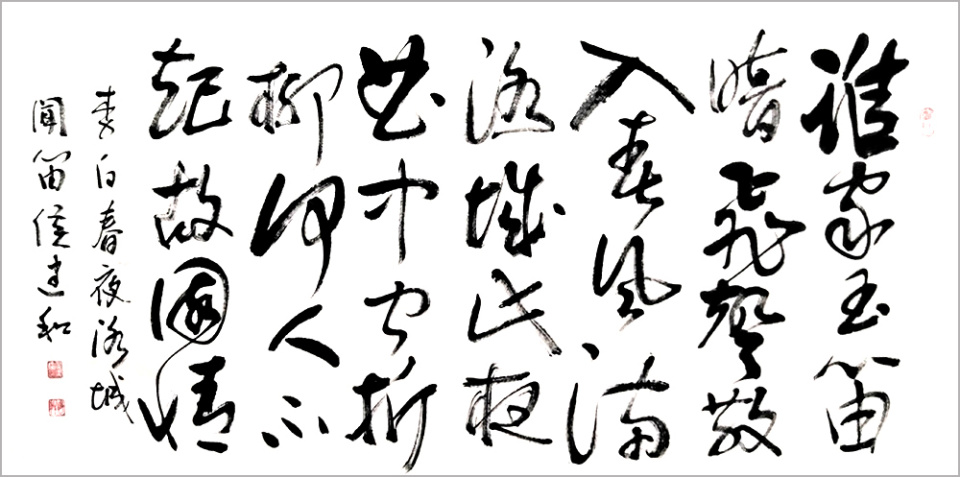 誰家玉笛
暗飛聲散
入春風滿
洛城此夜
曲中聞折
柳何人不
起故園情
李白春夜洛城
聞笛侯建和